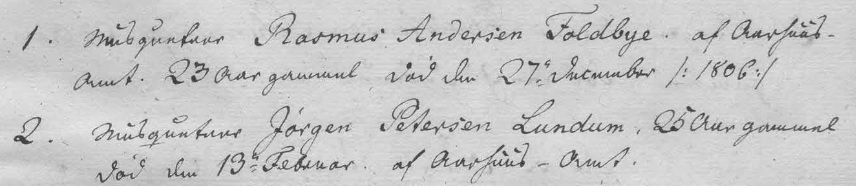 1. Musqueteer Rasmus Andersen Foldbye. af Aarhuus-
Amt. 23 Aar gammel, død den 27de December /: 1806:/
2. Musqueteer Jørgen Petersen Lundum, 25 Aar gammel
død den 13de Februar. af Aarhuus-Amt.